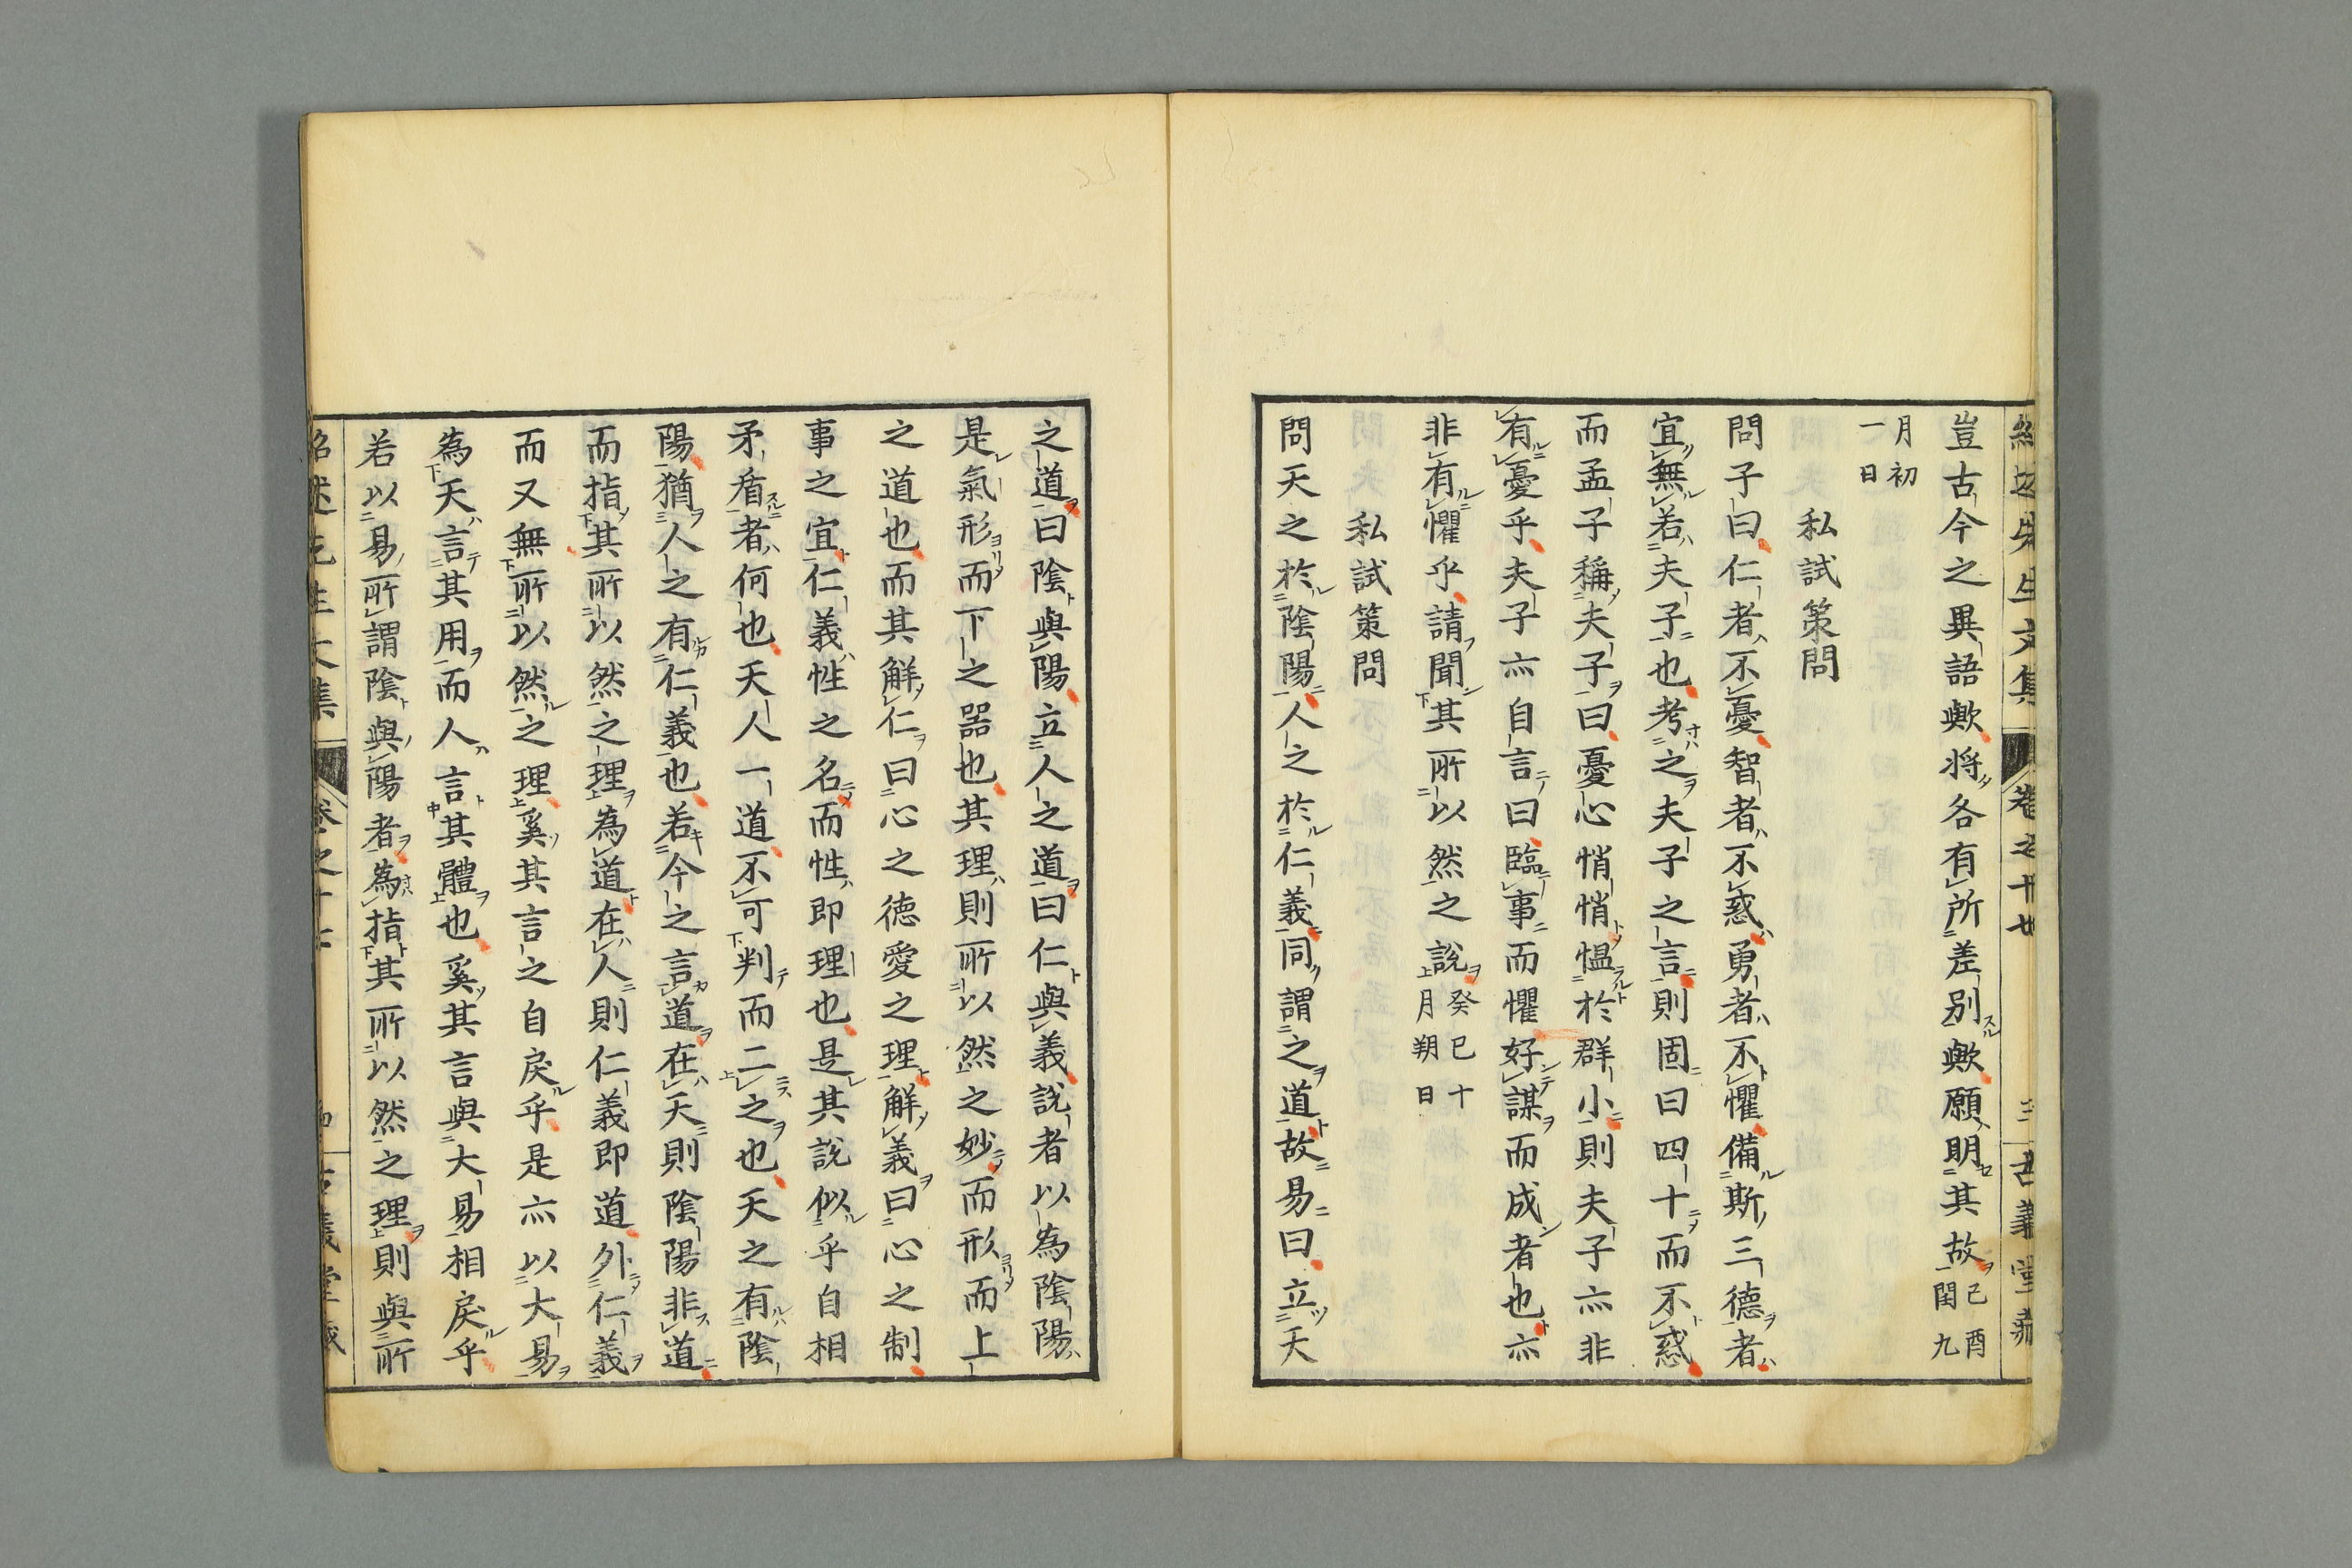 豈古今之異語歟將各有所差別歟願明其故己酉閏九
月初一日
私試策問
問子曰仁者不憂智者不惑勇者不懼備斯三德者
宜無若夫子也考之夫子之言則固曰四十而不惑
而孟子稱夫子曰憂心悄悄慍於群小則夫子亦非
有憂乎夫子亦自言曰臨事而懼好謀而成者也亦
非有懼乎請聞其所以然之說癸巳十月朔日
私試策問
問天之於陰陽人之於仁義同謂之道故易曰立天
之道曰陰與陽立人之道曰仁與義說者以為陰陽
是氣形而下之器也其理則所以然之妙而形而上
之道也而其解仁曰心之德愛之理解義曰心之制
事之宜仁義性之名而性即理也是其說似乎自相
矛盾者何也天人一道不可判而二之也天之有陰
陽猶人之有仁義也若今之言道在天則陰陽非道
而指其所以然之理為道在人則仁義即道外仁義
而又無所以然之理奚其言之自戾乎是亦以大易
為天言其用而人言其體也奚其言與大易相戾乎
若以易所謂陰與陽者為指其所以然之理則與所